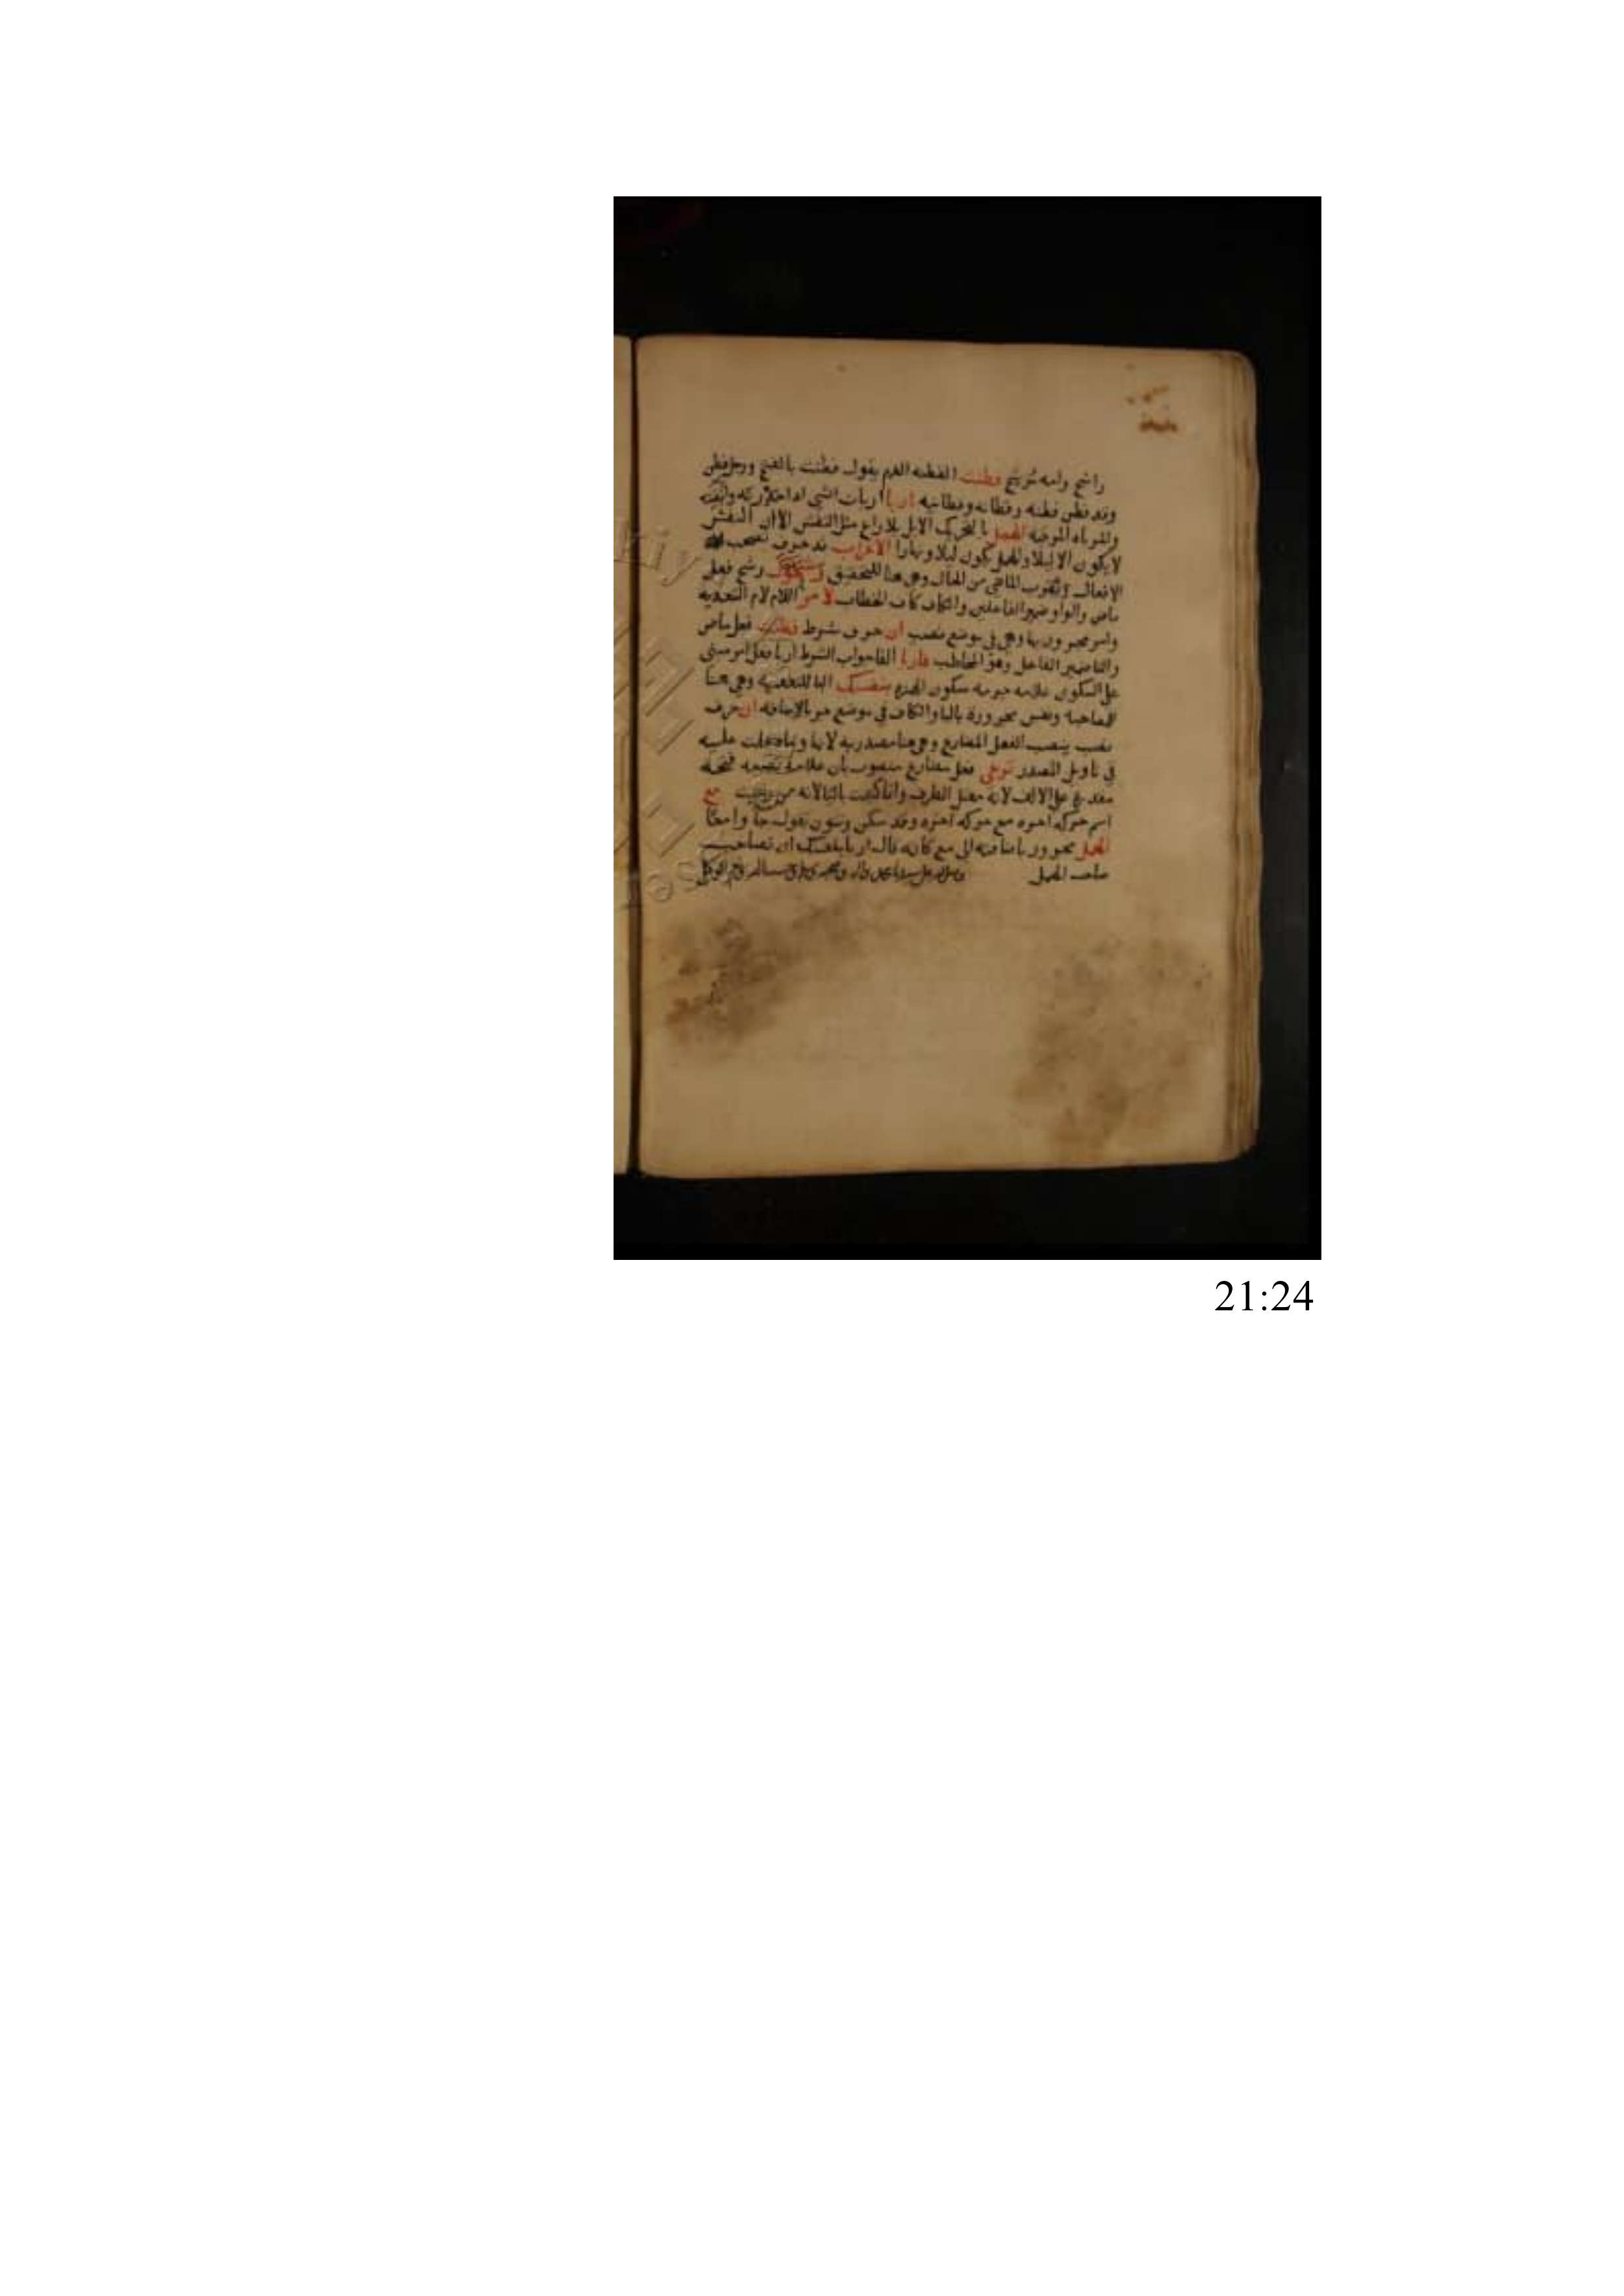 راشح وامه ترشح فطنت الفطنه الفهم يقول فطنت بالفتح ورجل فطن
وقد فطن فطنه وفطانه وفطانيه اربا اربات الشي اذا
والمرباه المرقبه الهمل بالتحريك الابل بلا راع مثل النفش الا ان النفش
لا يكون الا ليلا والهمل يكون ليلا ونهارا الاعراب قد حرف تصحب
الافعال وتقرب الماضي من الحال وهي هنا للتحقيق رشح فعل
ماض والواو ضمير الفاعلين والكاف كاف الخطاب لامر اللام لام التعدية
وامر مجرور بها وهي في موضع نصب ان حرف شرط فطنت فعل ماض
والتا ضمير الفاعل وهو المخاطب فاربا الفا جواب الشرط اربا فعل امر مبني
على السكون علامه جزمه سكون الهمزه بنفسك البا للتعديه وهي هنا
للمصاحبة ونفس مجرورة بالبا والكاف في موضع جر بالاضافه ان حرف
نصب ينصب الفعل المضارع وهي هنا مصدريه لانها وما دخلت عليه
في تاويل المصدر ترعى فعل مضارع منصوب بان علامة نصبه فتحه
مقدرة على الالف لانه معتل الطرف وانما كتبت باليا لانه من رعيت مع
اسم حركه اخره مع حركه اخره وقد سكن وينون يقول جاوا معا
الهمل مجرور باضافته الى مع كانه قال اربا بنفسك ان تصاحب
صاحب الهمل
21:24